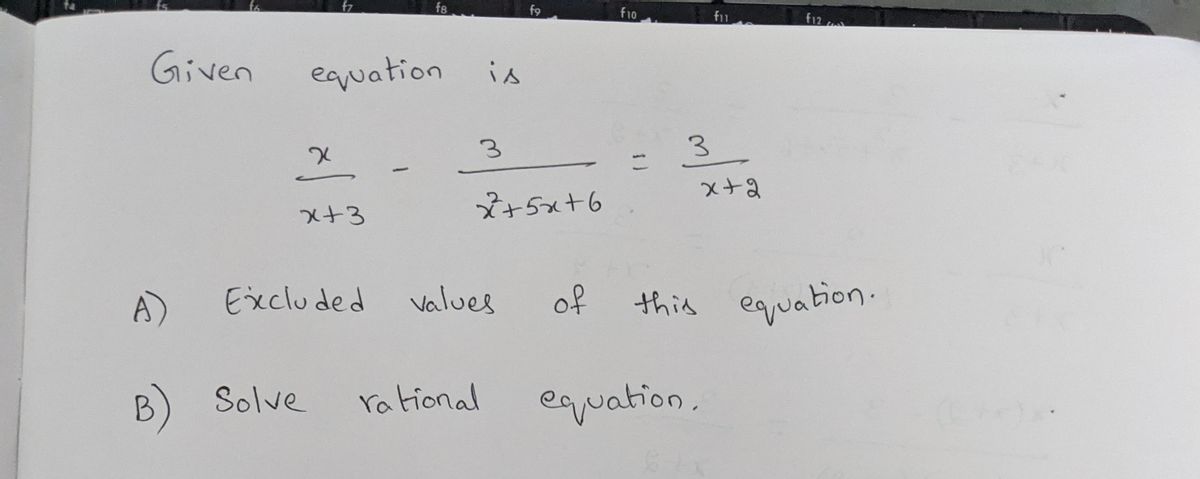 f7 f8 f9 f10 f11 f12
Given equation is
x/(x+3) - 3/(x²+5x+6) = 3/(x+2)
A) Excluded values of this equation.
B) Solve rational equation.